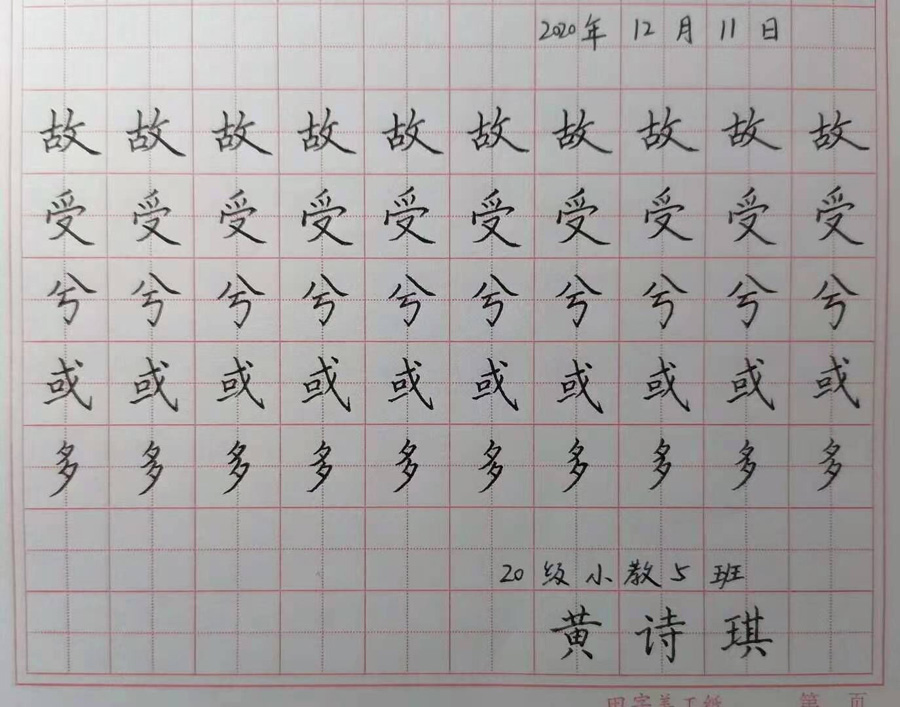 2020年 12月 11日
故故故故故故故故故故
受受受受受受受受受受
兮兮兮兮兮兮兮兮兮兮
或或或或或或或或或或
多多多多多多多多多多
20级小教5班
黄诗琪
第 页